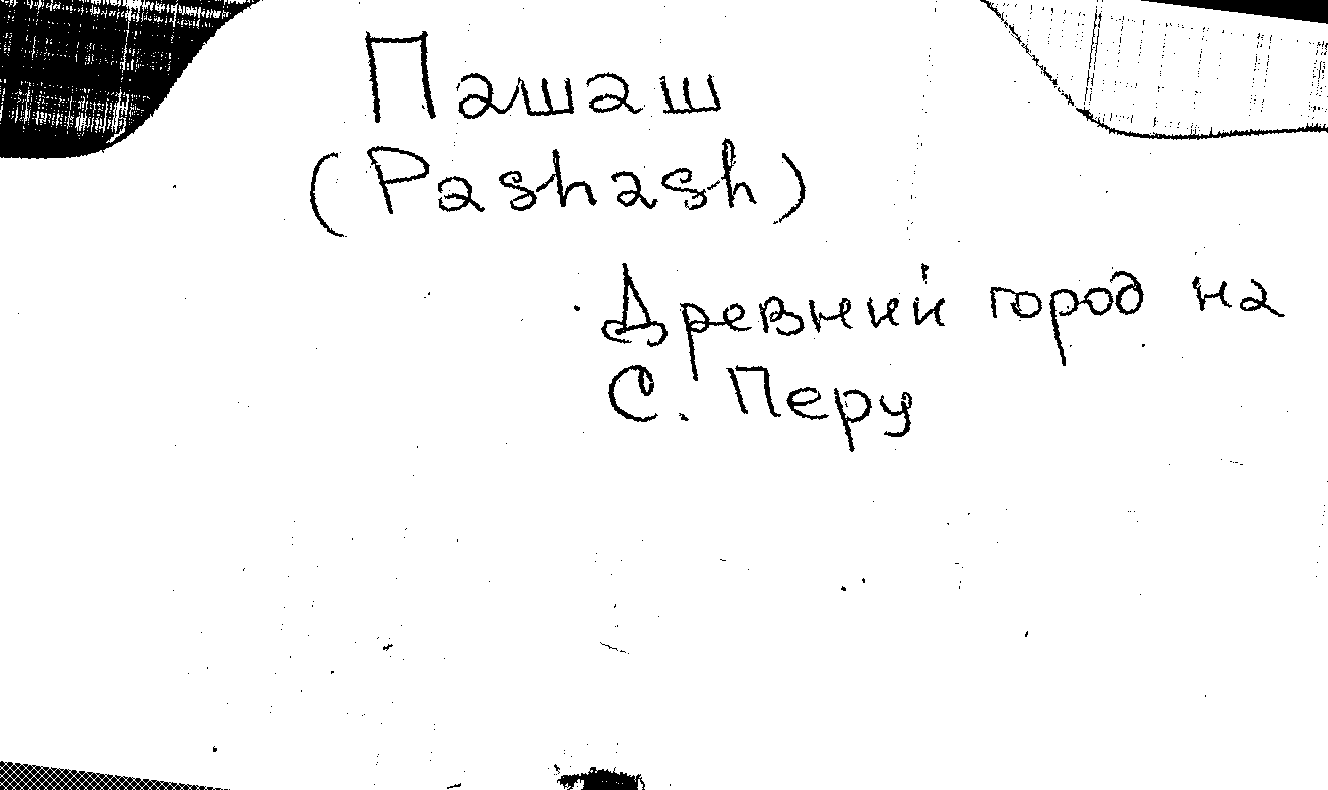 Пашаш
(Pashash)
Древний город на
С. Перу